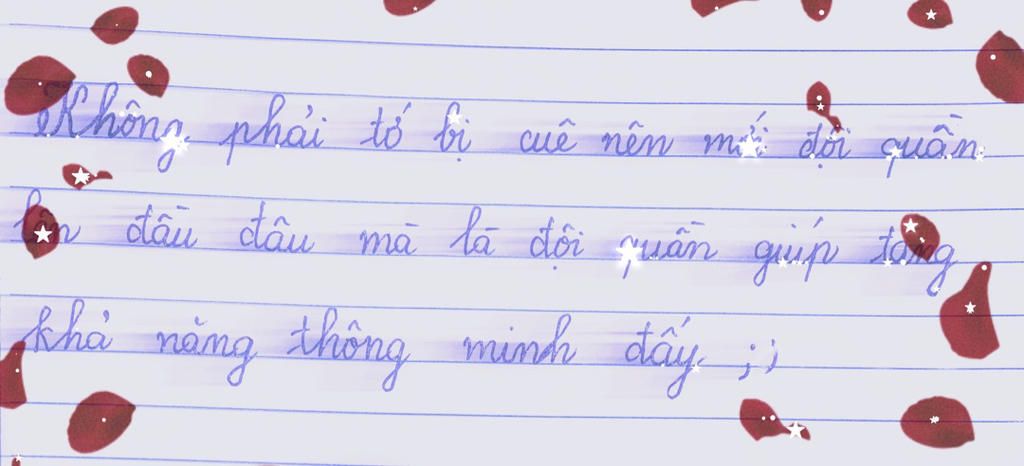 Không phải tớ bị cuê nên mới đội quần
lên đầu đâu mà là đội quần giúp tăng
khả năng thông minh đấy ;;